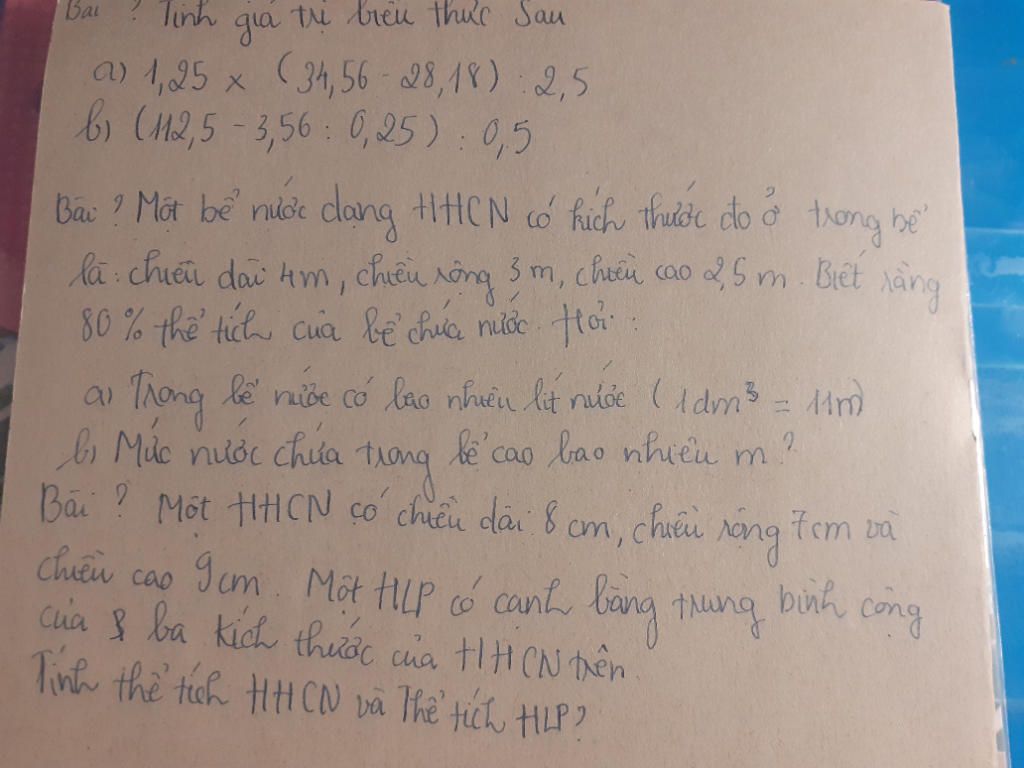 Bài ? Tính giá trị biểu thức Sau
a) 1,25 x (34,56 - 28,18) : 2,5
b) (112,5 - 3,56 : 0,25) : 0,5
Bài ? Một bể nước dạng HHCN có kích thước đo ở trong bể
là: chiều dài 4m, chiều rộng 3 m, chiều cao 2,5 m. Biết rằng
80% thể tích của bể chứa nước. Hỏi:
a) Trong bể nước có bao nhiêu lít nước (1dm³ = 11m)
b) Mức nước chứa trong bể cao bao nhiêu m?
Bài ? Một HHCN có chiều dài 8 cm, chiều rộng 7cm và
chiều cao 9cm. Một HLP có cạnh bằng trung bình cộng
của ba kích thước của HHCN trên.
Tính thể tích HHCN và Thể tích HLP?